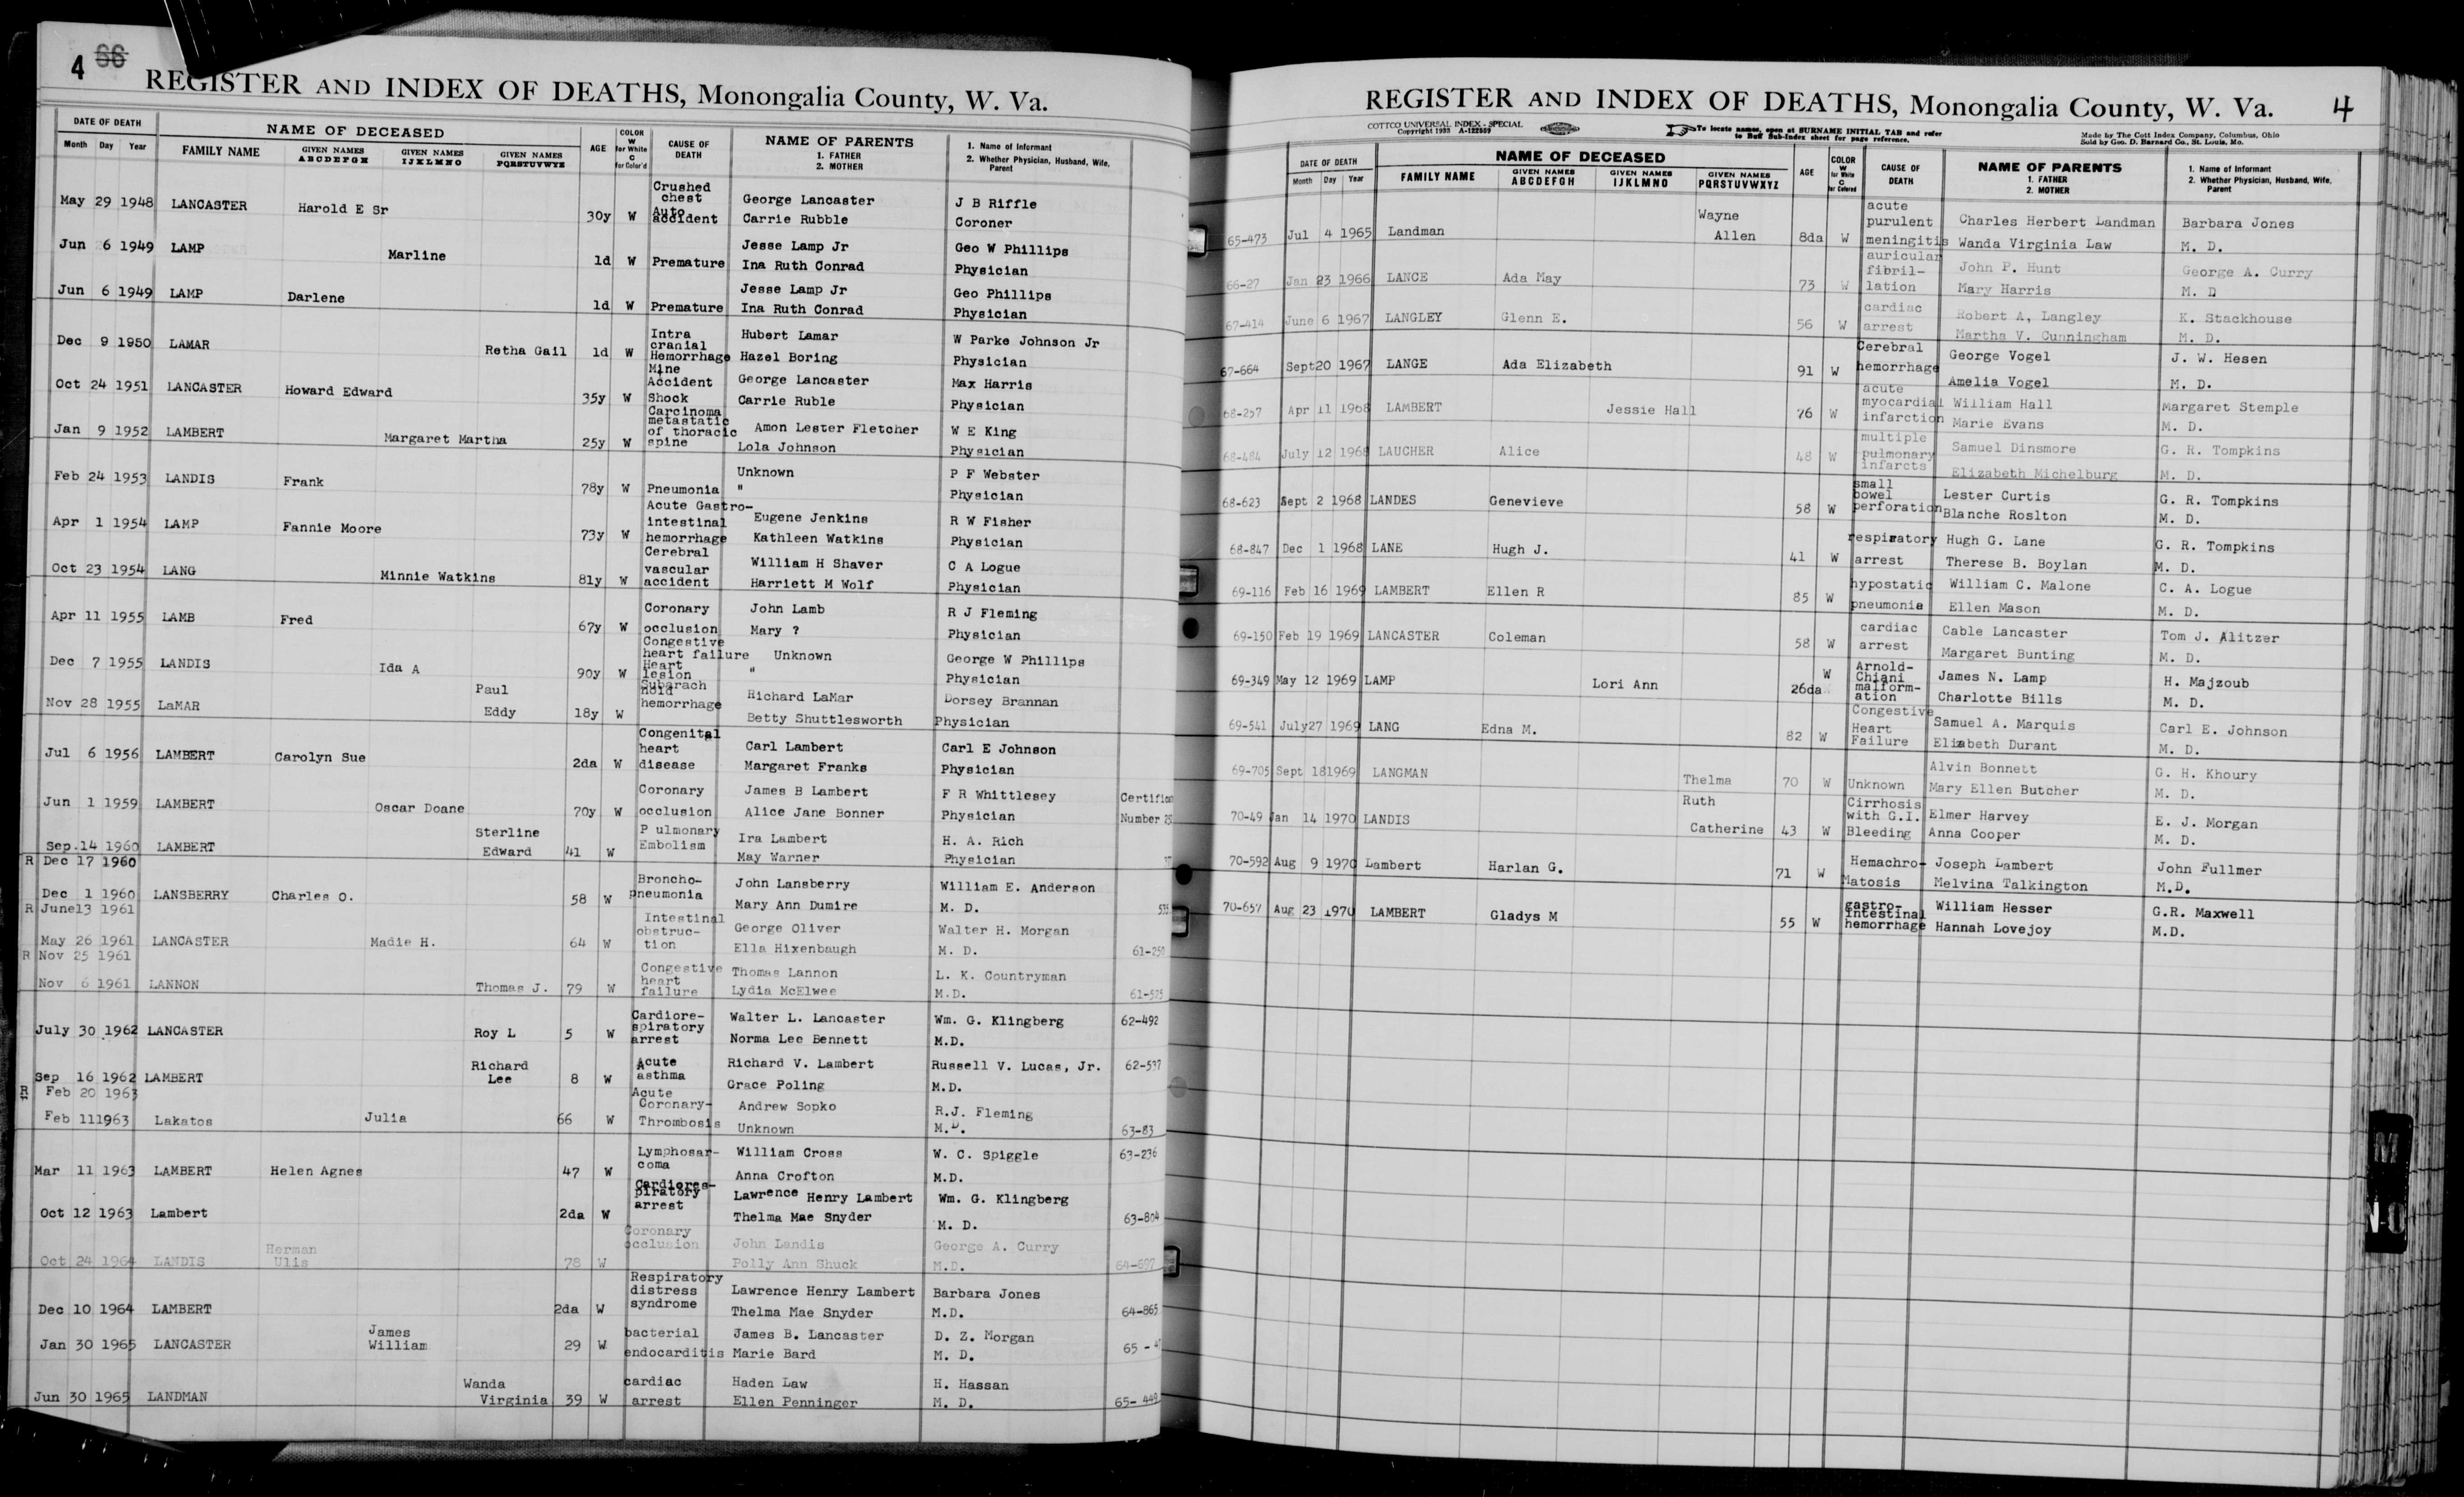 4 66
REGISTER AND INDEX OF DEATHS, Monongalia County, W. Va.
DATE OF DEATH NAME OF DECEASED AGE COLOR W for White C for Color'd CAUSE OF DEATH NAME OF PARENTS 1. FATHER 2. MOTHER 1. Name of Informant 2. Whether Physician, Husband, Wife, Parent
Month Day Year FAMILY NAME GIVEN NAMES ABCDEFGH GIVEN NAMES IJKLMNO GIVEN NAMES PQRSTUVWXYZ
May 29 1948 LANCASTER Harold E Sr 30y W Crushed chest Auto accident George Lancaster J B Riffle
Carrie Rubble Coroner
Jun 6 1949 LAMP Marline 1d W Premature Jesse Lamp Jr Geo W Phillips
Ina Ruth Conrad Physician
Jun 6 1949 LAMP Darlene 1d W Premature Jesse Lamp Jr Geo Phillips
Ina Ruth Conrad Physician
Dec 9 1950 LAMAR Retha Gail 1d W Intra cranial Hemorrhage Hubert Lamar W Parke Johnson Jr
Hazel Boring Physician
Oct 24 1951 LANCASTER Howard Edward 35y W Mine Accident Shock George Lancaster Max Harris
Carrie Ruble Physician
Jan 9 1952 LAMBERT Margaret Martha 25y W Carcinoma metastatic of thoracic spine Amon Lester Fletcher W E King
Lola Johnson Physician
Feb 24 1953 LANDIS Frank 78y W Pneumonia Unknown P F Webster
" Physician
Apr 1 1954 LAMP Fannie Moore 73y W Acute Gastro-intestinal hemorrhage Eugene Jenkins R W Fisher
Kathleen Watkins Physician
Oct 23 1954 LANG Minnie Watkins 81y W Cerebral vascular accident William H Shaver C A Logue
Harriett M Wolf Physician
Apr 11 1955 LAMB Fred 67y W Coronary occlusion John Lamb R J Fleming
Mary ? Physician
Dec 7 1955 LANDIS Ida A 90y W Congestive heart failure Heart lesion Unknown George W Phillips
" Physician
Nov 28 1955 LaMAR Paul Eddy 18y W Subarach noid hemorrhage Richard LaMar Dorsey Brannan
Betty Shuttlesworth Physician
Jul 6 1956 LAMBERT Carolyn Sue 2da W Congenital heart disease Carl Lambert Carl E Johnson
Margaret Franks Physician
Jun 1 1959 LAMBERT Oscar Doane 70y W Coronary occlusion James B Lambert F R Whittlesey
Alice Jane Bonner Physician Number
Sep.14 1960 LAMBERT Sterline Edward 41 W P ulmonary Embolism Ira Lambert H. A. Rich
R Dec 17 1960 May Warner Physician
Dec 1 1960 LANSBERRY Charles O. 58 W Broncho-pneumonia John Lansberry William E. Anderson
R June13 1961 Mary Ann Dumire M. D.
May 26 1961 LANCASTER Madie H. 64 W Intestinal obstruc-tion George Oliver Walter H. Morgan
R Nov 25 1961 Ella Hixenbaugh M. D. 61-250
Nov 6 1961 LANNON Thomas J. 79 W Congestive heart failure Thomas Lannon L. K. Countryman
Lydia McElwee M.D. 61-575
July 30 1962 LANCASTER Roy L 5 W Cardiore-spiratory arrest Walter L. Lancaster Wm. G. Klingberg 62-492
Norma Lee Bennett M.D.
Sep 16 1962 LAMBERT Richard Lee 8 W Acute asthma Richard V. Lambert Russell V. Lucas, Jr. 62-597
R Feb 20 1963 Grace Poling M.D.
Feb 111963 Lakatos Julia 66 W Acute Coronary-Thrombosis Andrew Sopko R.J. Fleming
Unknown M.D. 63-83
Mar 11 1963 LAMBERT Helen Agnes 47 W Lymphosar-coma William Cross W. C. Spiggle 63-236
Anna Crofton M.D.
Oct 12 1963 Lambert 2da W Cardiores-piratory arrest Lawrence Henry Lambert Wm. G. Klingberg
Thelma Mae Snyder M. D. 63-804
Oct 24 1964 LANDIS Herman Ulis 78 W Coronary occlusion John Landis George A. Curry
Polly Ann Shuck M.D.
Dec 10 1964 LAMBERT 2da W Respiratory distress syndrome Lawrence Henry Lambert Barbara Jones
Thelma Mae Snyder M.D. 64-865
Jan 30 1965 LANCASTER James William 29 W bacterial endocarditis James B. Lancaster D. Z. Morgan
Marie Bard M. D.
Jun 30 1965 LANDMAN Wanda Virginia 39 W cardiac arrest Haden Law H. Hassan
Ellen Penninger M. D. 65-449
REGISTER AND INDEX OF DEATHS, Monongalia County, W. Va. 4
COTTCO UNIVERSAL INDEX - SPECIAL
Copyright 1933 A-122559
To locate names, open at SURNAME INITIAL TAB and refer
to Buff Sub-Index sheet for page reference.
Made by The Cott Index Company, Columbus, Ohio
Sold by Geo. D. Barnard Co., St. Louis, Mo.
DATE OF DEATH NAME OF DECEASED AGE COLOR W for White C for Colored CAUSE OF DEATH NAME OF PARENTS 1. FATHER 2. MOTHER 1. Name of Informant 2. Whether Physician, Husband, Wife, Parent
Month Day Year FAMILY NAME GIVEN NAMES ABCDEFGH GIVEN NAMES IJKLMNO GIVEN NAMES PQRSTUVWXYZ
65-473 Jul 4 1965 Landman Wayne Allen 8da W acute purulent meningitis Charles Herbert Landman Barbara Jones
Wanda Virginia Law M. D.
66-27 Jan 23 1966 LANCE Ada May 73 W auricular fibril-lation John P. Hunt George A. Curry
Mary Harris M. D
67-414 June 6 1967 LANGLEY Glenn E. 56 W cardiac arrest Robert A, Langley K. Stackhouse
Martha V. Cunningham M. D.
67-664 Sept20 1967 LANGE Ada Elizabeth 91 W Cerebral hemorrhage George Vogel J. W. Hesen
Amelia Vogel M. D.
68-257 Apr 11 1968 LAMBERT Jessie Hall 76 W acute myocardial infarction William Hall Margaret Stemple
Marie Evans M. D.
68-484 July 12 1968 LAUCHER Alice 48 W multiple pulmonary infarcts Samuel Dinsmore G. R. Tompkins
Elizabeth Michelburg M. D.
68-623 Sept 2 1968 LANDES Genevieve 58 W small bowel perforation Lester Curtis G. R. Tompkins
Blanche Roslton M. D.
68-847 Dec 1 1968 LANE Hugh J. 41 W respiratory arrest Hugh G. Lane G. R. Tompkins
Therese B. Boylan M. D.
69-116 Feb 16 1969 LAMBERT Ellen R 85 W hypostatic pneumonia William C. Malone C. A. Logue
Ellen Mason M. D.
69-150 Feb 19 1969 LANCASTER Coleman 58 W cardiac arrest Cable Lancaster Tom J. Alitzer
Margaret Bunting M. D.
69-349 May 12 1969 LAMP Lori Ann 26da W Arnold-Chiani malform-ation James N. Lamp H. Majzoub
Charlotte Bills M. D.
69-541 July27 1969 LANG Edna M. 82 W Congestive Heart Failure Samuel A. Marquis Carl E. Johnson
Elizabeth Durant M. D.
69-705 Sept 181969 LANGMAN Thelma Ruth 70 W Unknown Alvin Bonnett G. H. Khoury
Mary Ellen Butcher M. D.
70-49 Jan 14 1970 LANDIS Catherine 43 W Cirrhosis with G.I. Bleeding Elmer Harvey E. J. Morgan
Anna Cooper M. D.
70-592 Aug 9 1970 Lambert Harlan G. 71 W Hemachro-Matosis Joseph Lambert John Fullmer
Melvina Talkington M.D.
70-657 Aug 23 1970 LAMBERT Gladys M 55 W gastro-intestinal hemorrhage William Hesser G.R. Maxwell
Hannah Lovejoy M.D.
M